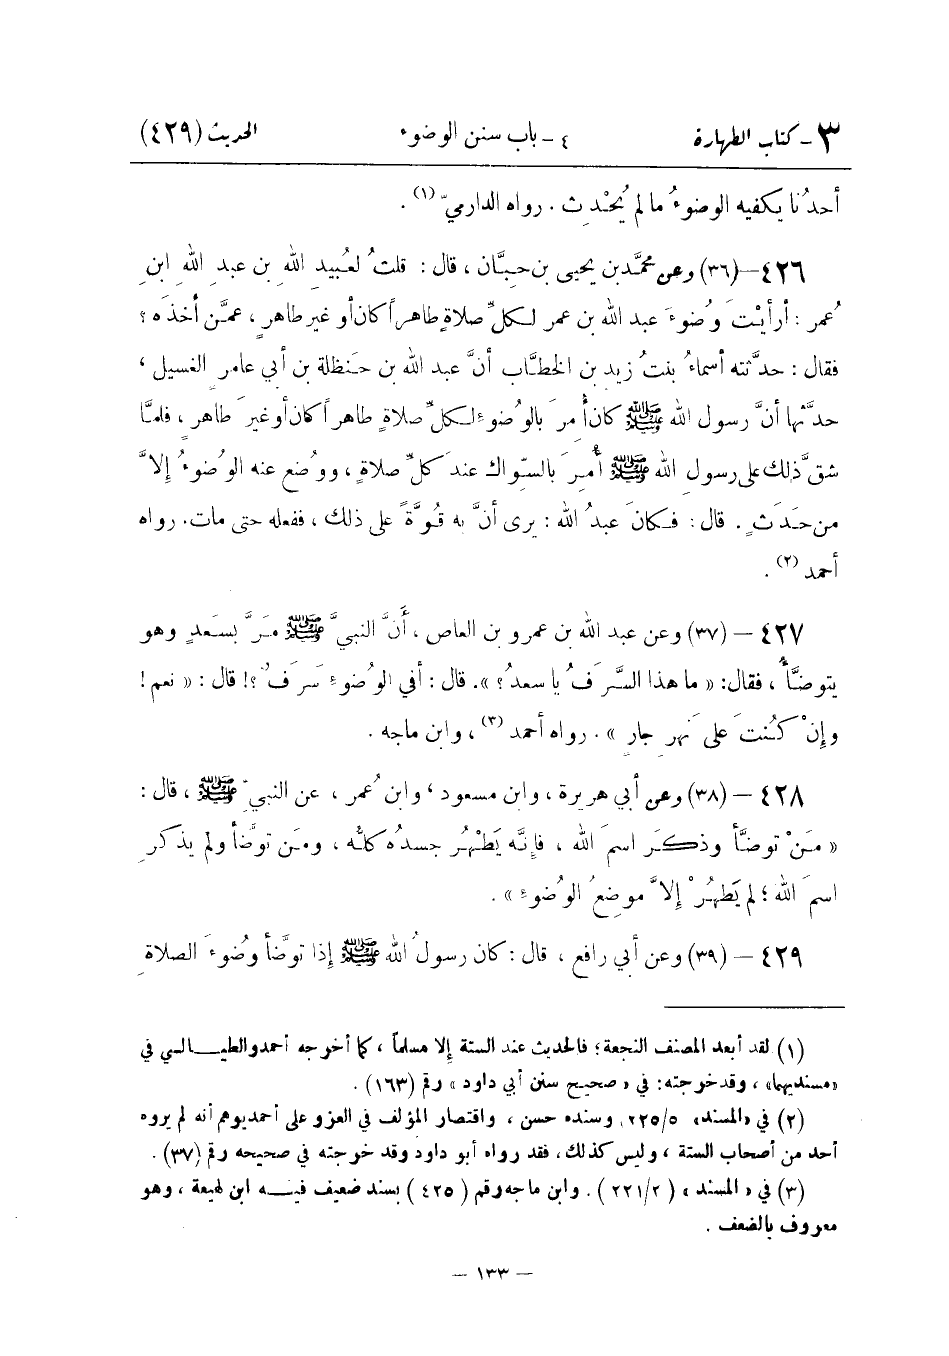 ٣ - كتاب الطهارة ٤ - باب سنن الوضوء الحديث (٤٢٩)
أحدُنا يكفيه الوضوءُ ما لم يُحْدِث . رواه الدارميّ (١) .
٤٢٦ – (٣٦) وعن محمَّد بن يحيى بن حبَّان ، قال : قلتُ لعُبيدِ اللهِ بن عبدِ اللهِ ابنِ
عُمر : أرأيْتَ وُضوءَ عبد الله بن عمر لكلِّ صلاةٍ طاهراً كان أو غير طاهرٍ ، عمَّن أخذَه ؟
فقال : حدَّثته أسماءُ بنتُ زيد بن الخطَّاب أنَّ عبد الله بن حَنظلة بن أبي عامر الغسيل ،
حدَّثها أنَّ رسول الله ﷺ كان أُمرَ بالوُضوءِ لكلِّ صلاةٍ طاهراً كان أو غيرَ طاهرٍ ، فلمَّا
شقَّ ذلك على رسول الله ﷺ أُمِرَ بالسِّواك عندَ كلِّ صلاةٍ ، ووُضع عنه الوُضوءُ إلاَّ
من حَدَثٍ . قال : فكانَ عبدُ الله : يرى أنَّ به قُوَّةً على ذلك ، ففعله حتى مات . رواه
أحمد (٢) .
٤٢٧ – (٣٧) وعن عبد الله بن عمرو بن العاص ، أنَّ النبيَّ ﷺ مَرَّ بسَعدٍ وهو
يتوضَّأُ ، فقال : « ما هذا السَّرَفُ يا سعدُ ؟ » . قال : أفي الوُضوءِ سَرَفٌ ؟! قال : « نعم !
وإنْ كُنتَ على نَهرٍ جارٍ » . رواه أحمد (٣) ، وابن ماجه .
٤٢٨ – (٣٨) وعن أبي هريرة ، وابن مسعود ، وابن عُمر ، عن النبيِّ ﷺ ، قال :
« مَنْ توضَّأ وذكَرَ اسمَ الله ، فإنَّه يَطْهُر جسدُه كلُّه ، ومَن توضَّأ ولم يذكرِ
اسمَ الله ؛ لم يَطهُرْ إلاَّ موضعُ الوُضوءِ » .
٤٢٩ – (٣٩) وعن أبي رافع ، قال : كان رسولُ الله ﷺ إذا توضَّأ وُضوءَ الصلاةِ
(١) لقد أبعد المصنف النجعة ؛ فالحديث عند الستة إلا مسلماً ، كما أخرجه أحمد والطيالسي في
«مسنديهما» ، وقد خرجته : في « صحيح سنن أبي داود » رقم (١٦٣) .
(٢) في «المسند» ٢٢٥/٥ . وسنده حسن ، واقتصار المؤلف في العزو على أحمد يوهم أنه لم يروه
أحد من أصحاب الستة ، وليس كذلك ، فقد رواه أبو داود وقد خرجته في صحيحه رقم (٣٧) .
(٣) في « المسند » ( ٢٢١/٢ ) . وابن ماجه رقم ( ٤٢٥ ) بسند ضعيف فيه ابن لهيعة ، وهو
معروف بالضعف .
– ١٣٣ –